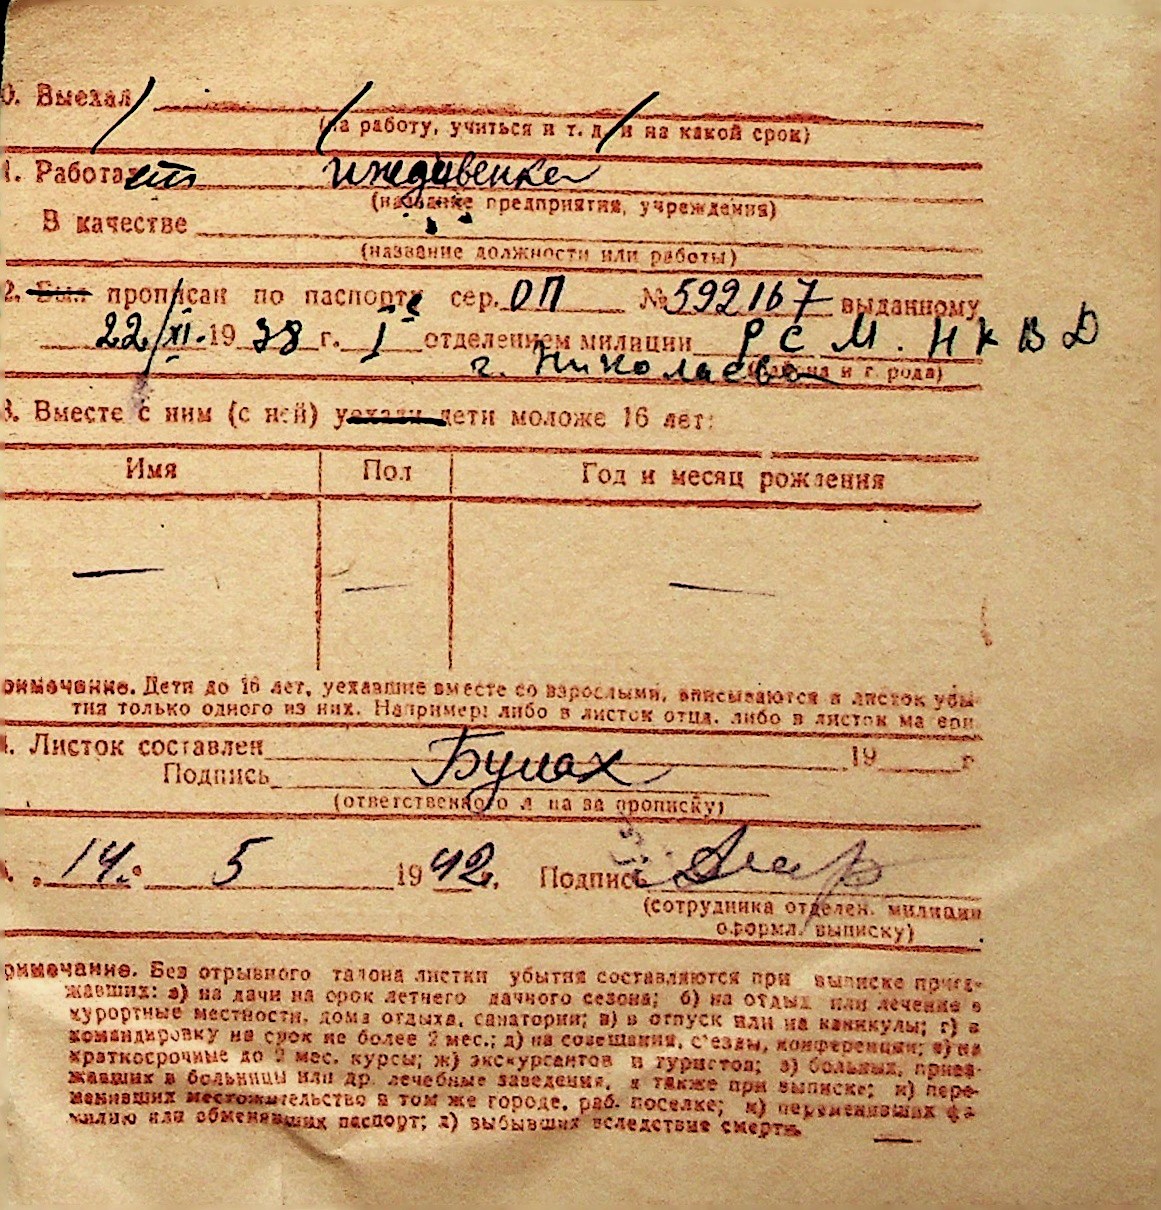 0. Выехал
(на работу, учиться и т. д. и на какой срок)
1. Работает иждивенка
(название предприятия, учреждения)
В качестве
(название должности или работы)
2. Был прописан по паспорту сер. ОП № 592167 выданному
22/XI. 19 38 г. I отделением милиции Р С М. Н К В Д
г. Николаева (района и города)
3. Вместе с ним (с ней) уехали дети моложе 16 лет:
Имя Пол Год и месяц рождения
— — —
римечание. Дети до 16 лет, уехавшие вместе со взрослыми, вписываются в листок убы-
тия только одного из них. Например: либо в листок отца, либо в листок матери.
4. Листок составлен 19 г.
Подпись Булах
(ответственного лица за прописку)
14. 5 19 42 г. Подпись
(сотрудника отделен. милиции
оформл. выписку)
римечание. Без отрывного талона листки убытия составляются при выписке приез-
жавших: а) на дачи на срок летнего дачного сезона; б) на отдых или лечение в
курортные местности, дома отдыха, санатории; в) в отпуск или на каникулы; г) в
командировку на срок не более 2 мес.; д) на совещания, с'езды, конференции; е) на
краткосрочные до 2 мес. курсы; ж) экскурсантов и туристов; з) больных, приез-
жавших в больницы или др. лечебные заведения, а также при выписке; и) пере-
менивших местожительство в том же городе, раб. поселке; к) переменивших фа-
милию или обменявших паспорт; л) выбывших вследствие смерти.